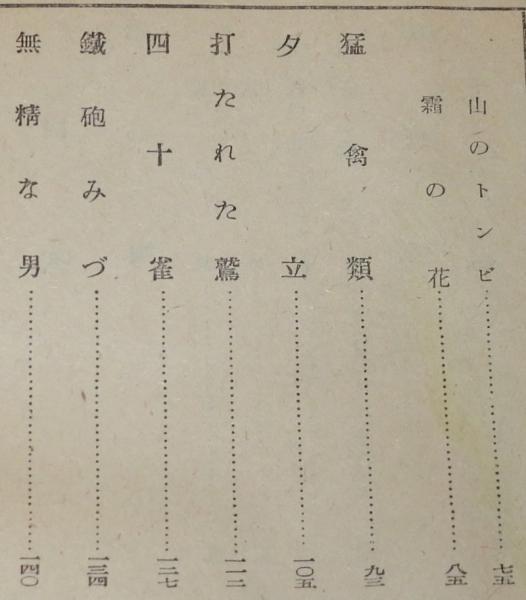 山のトンビ……七五
霜の花……八五
猛禽類……九三
夕立……一〇五
打たれた鷲……一一二
四十雀……一二七
鐵砲みづ……一三四
無精な男……一四〇